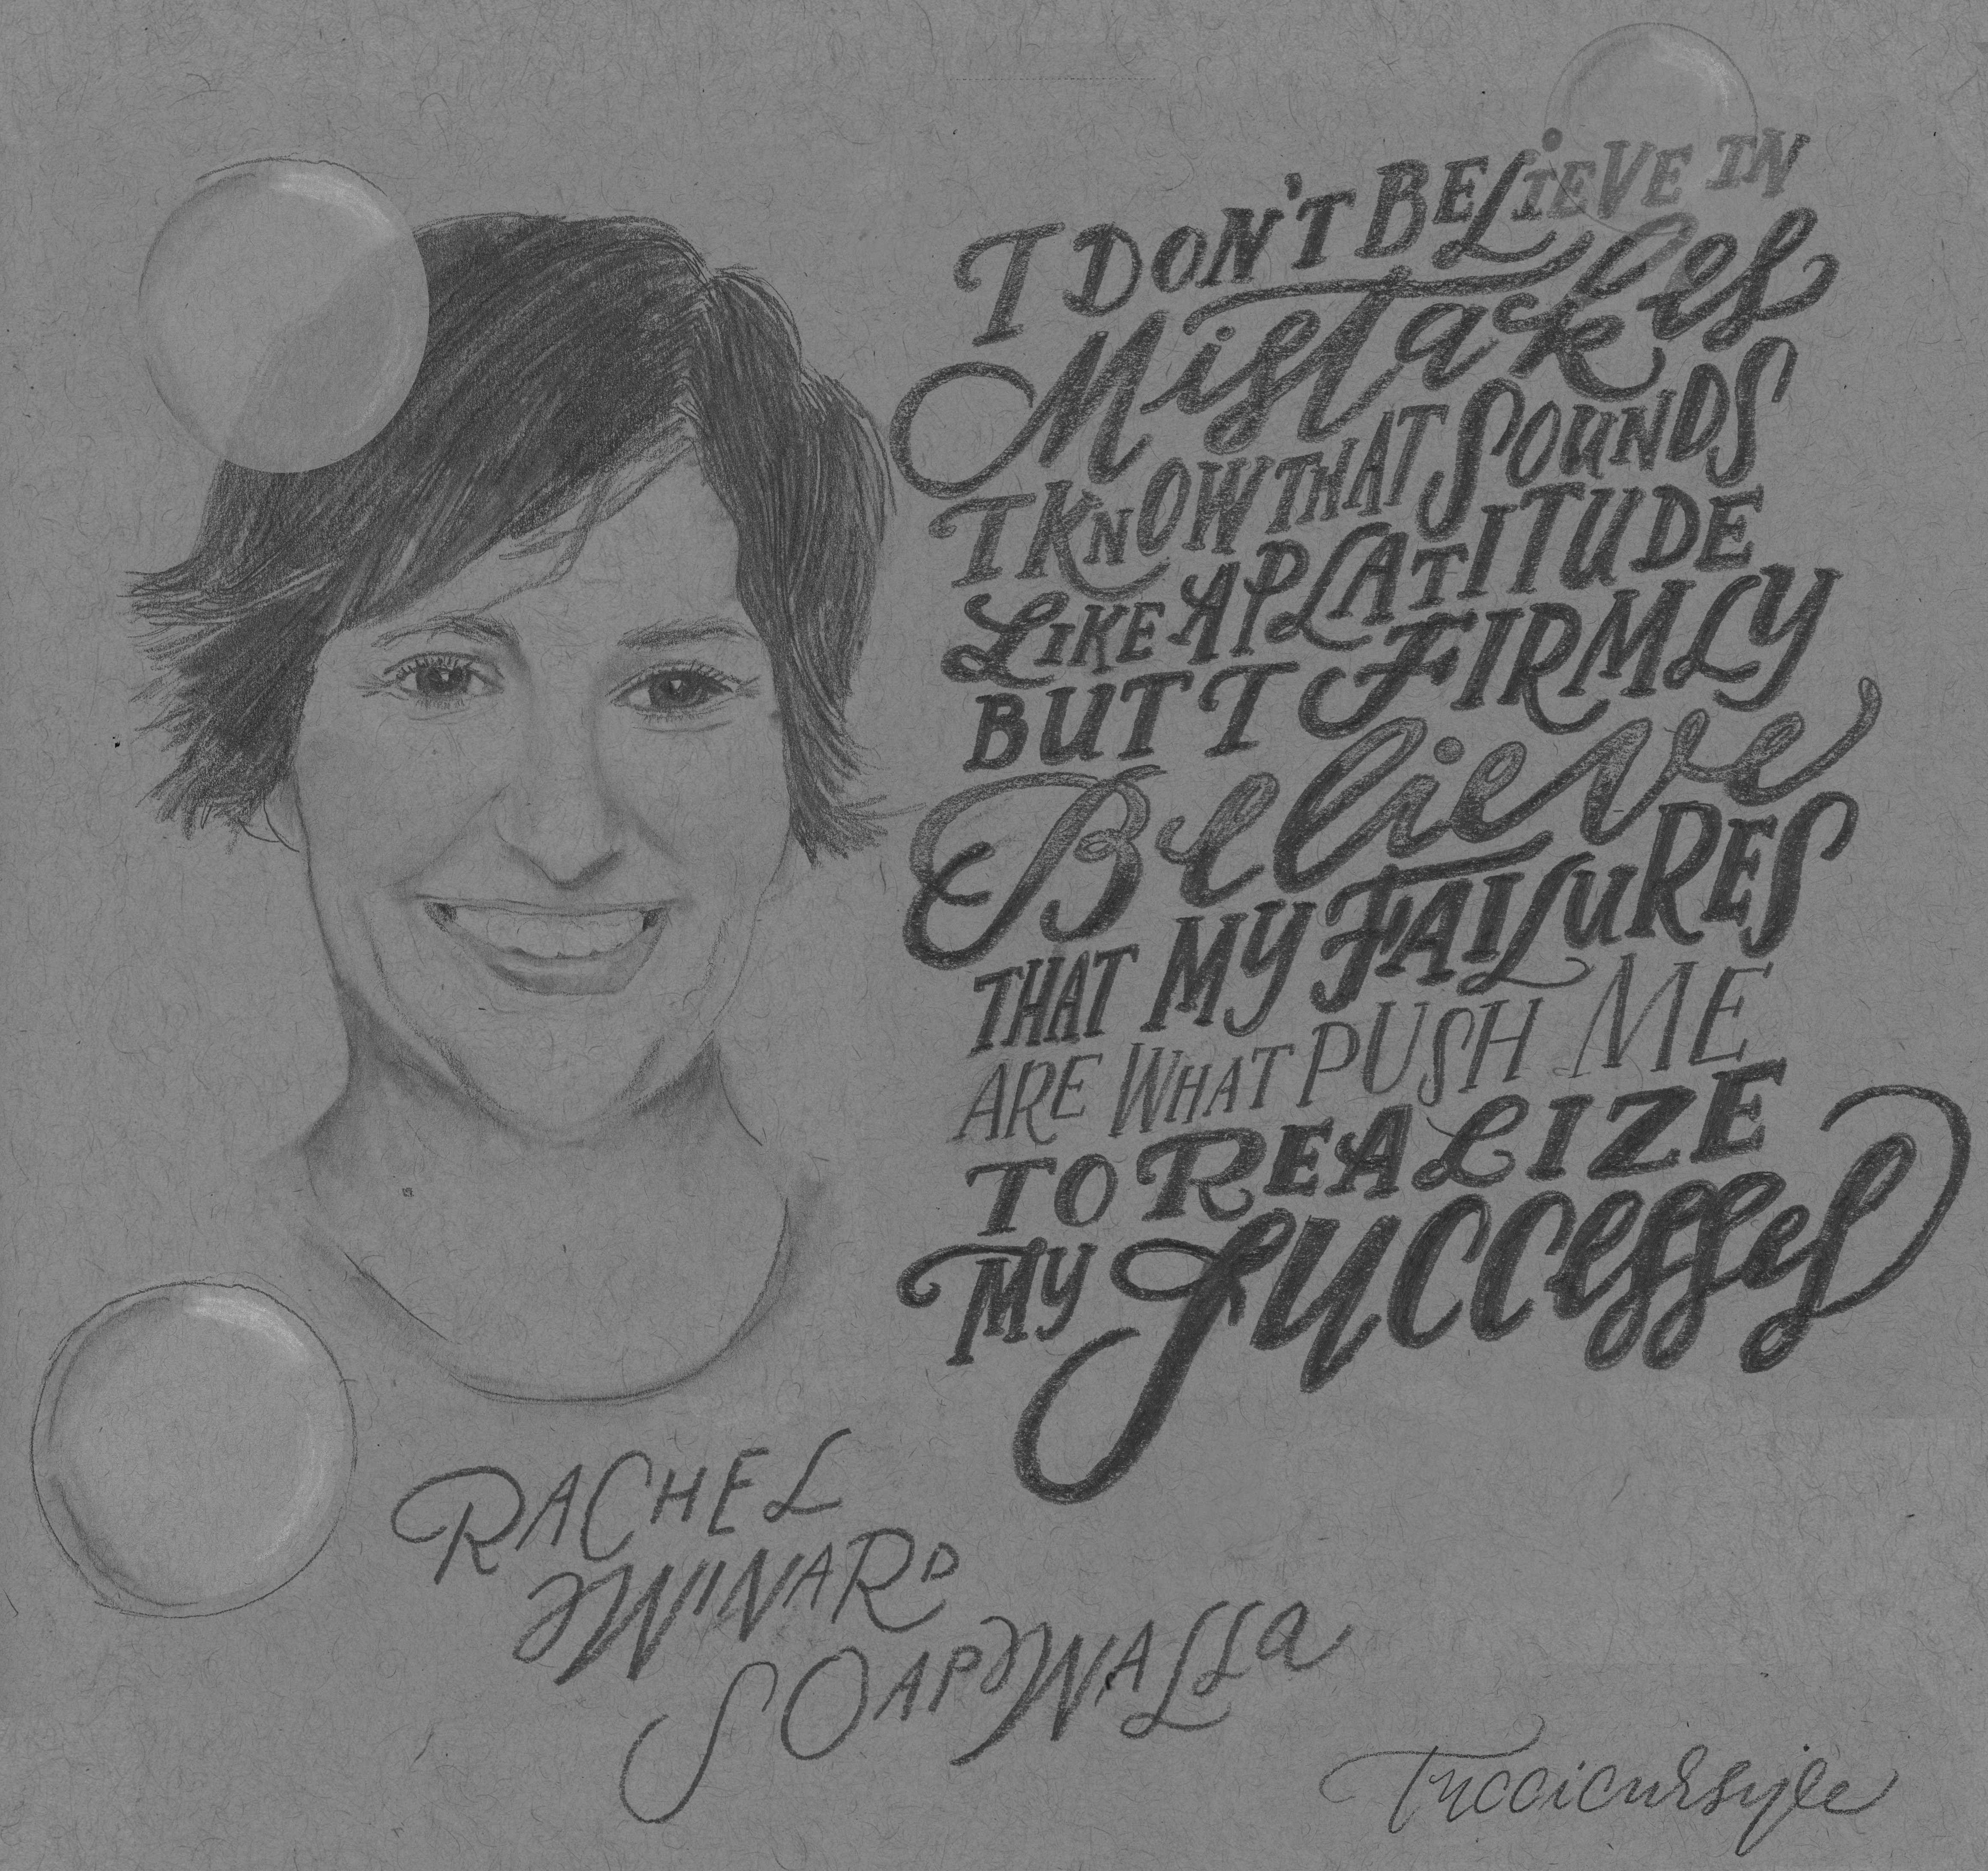 I DON'T BELIEVE IN
Mistakes
I KNOW THAT SOUNDS
LIKE A PLATITUDE
BUT I FIRMLY
Believe
THAT MY FAILURES
ARE WHAT PUSH ME
TO REALIZE
MY Successes
RACHEL
WINARD
SOAPWALLA